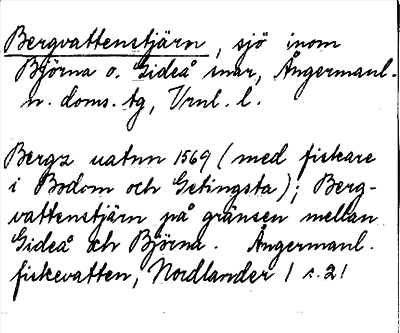 Bergvattenstjärn, sjö inom
Björna o. Gideå snar, Ångermanl.
n. doms. tg, Vrnl. l.
Bergz uatnn 1569 (med fiskare
i Bodom och Getingsta); Berg-
vattenstjärn på gränsen mellan
Gideå och Björna. Ångermanl.
fiskevatten, Nordlander 1 s. 21